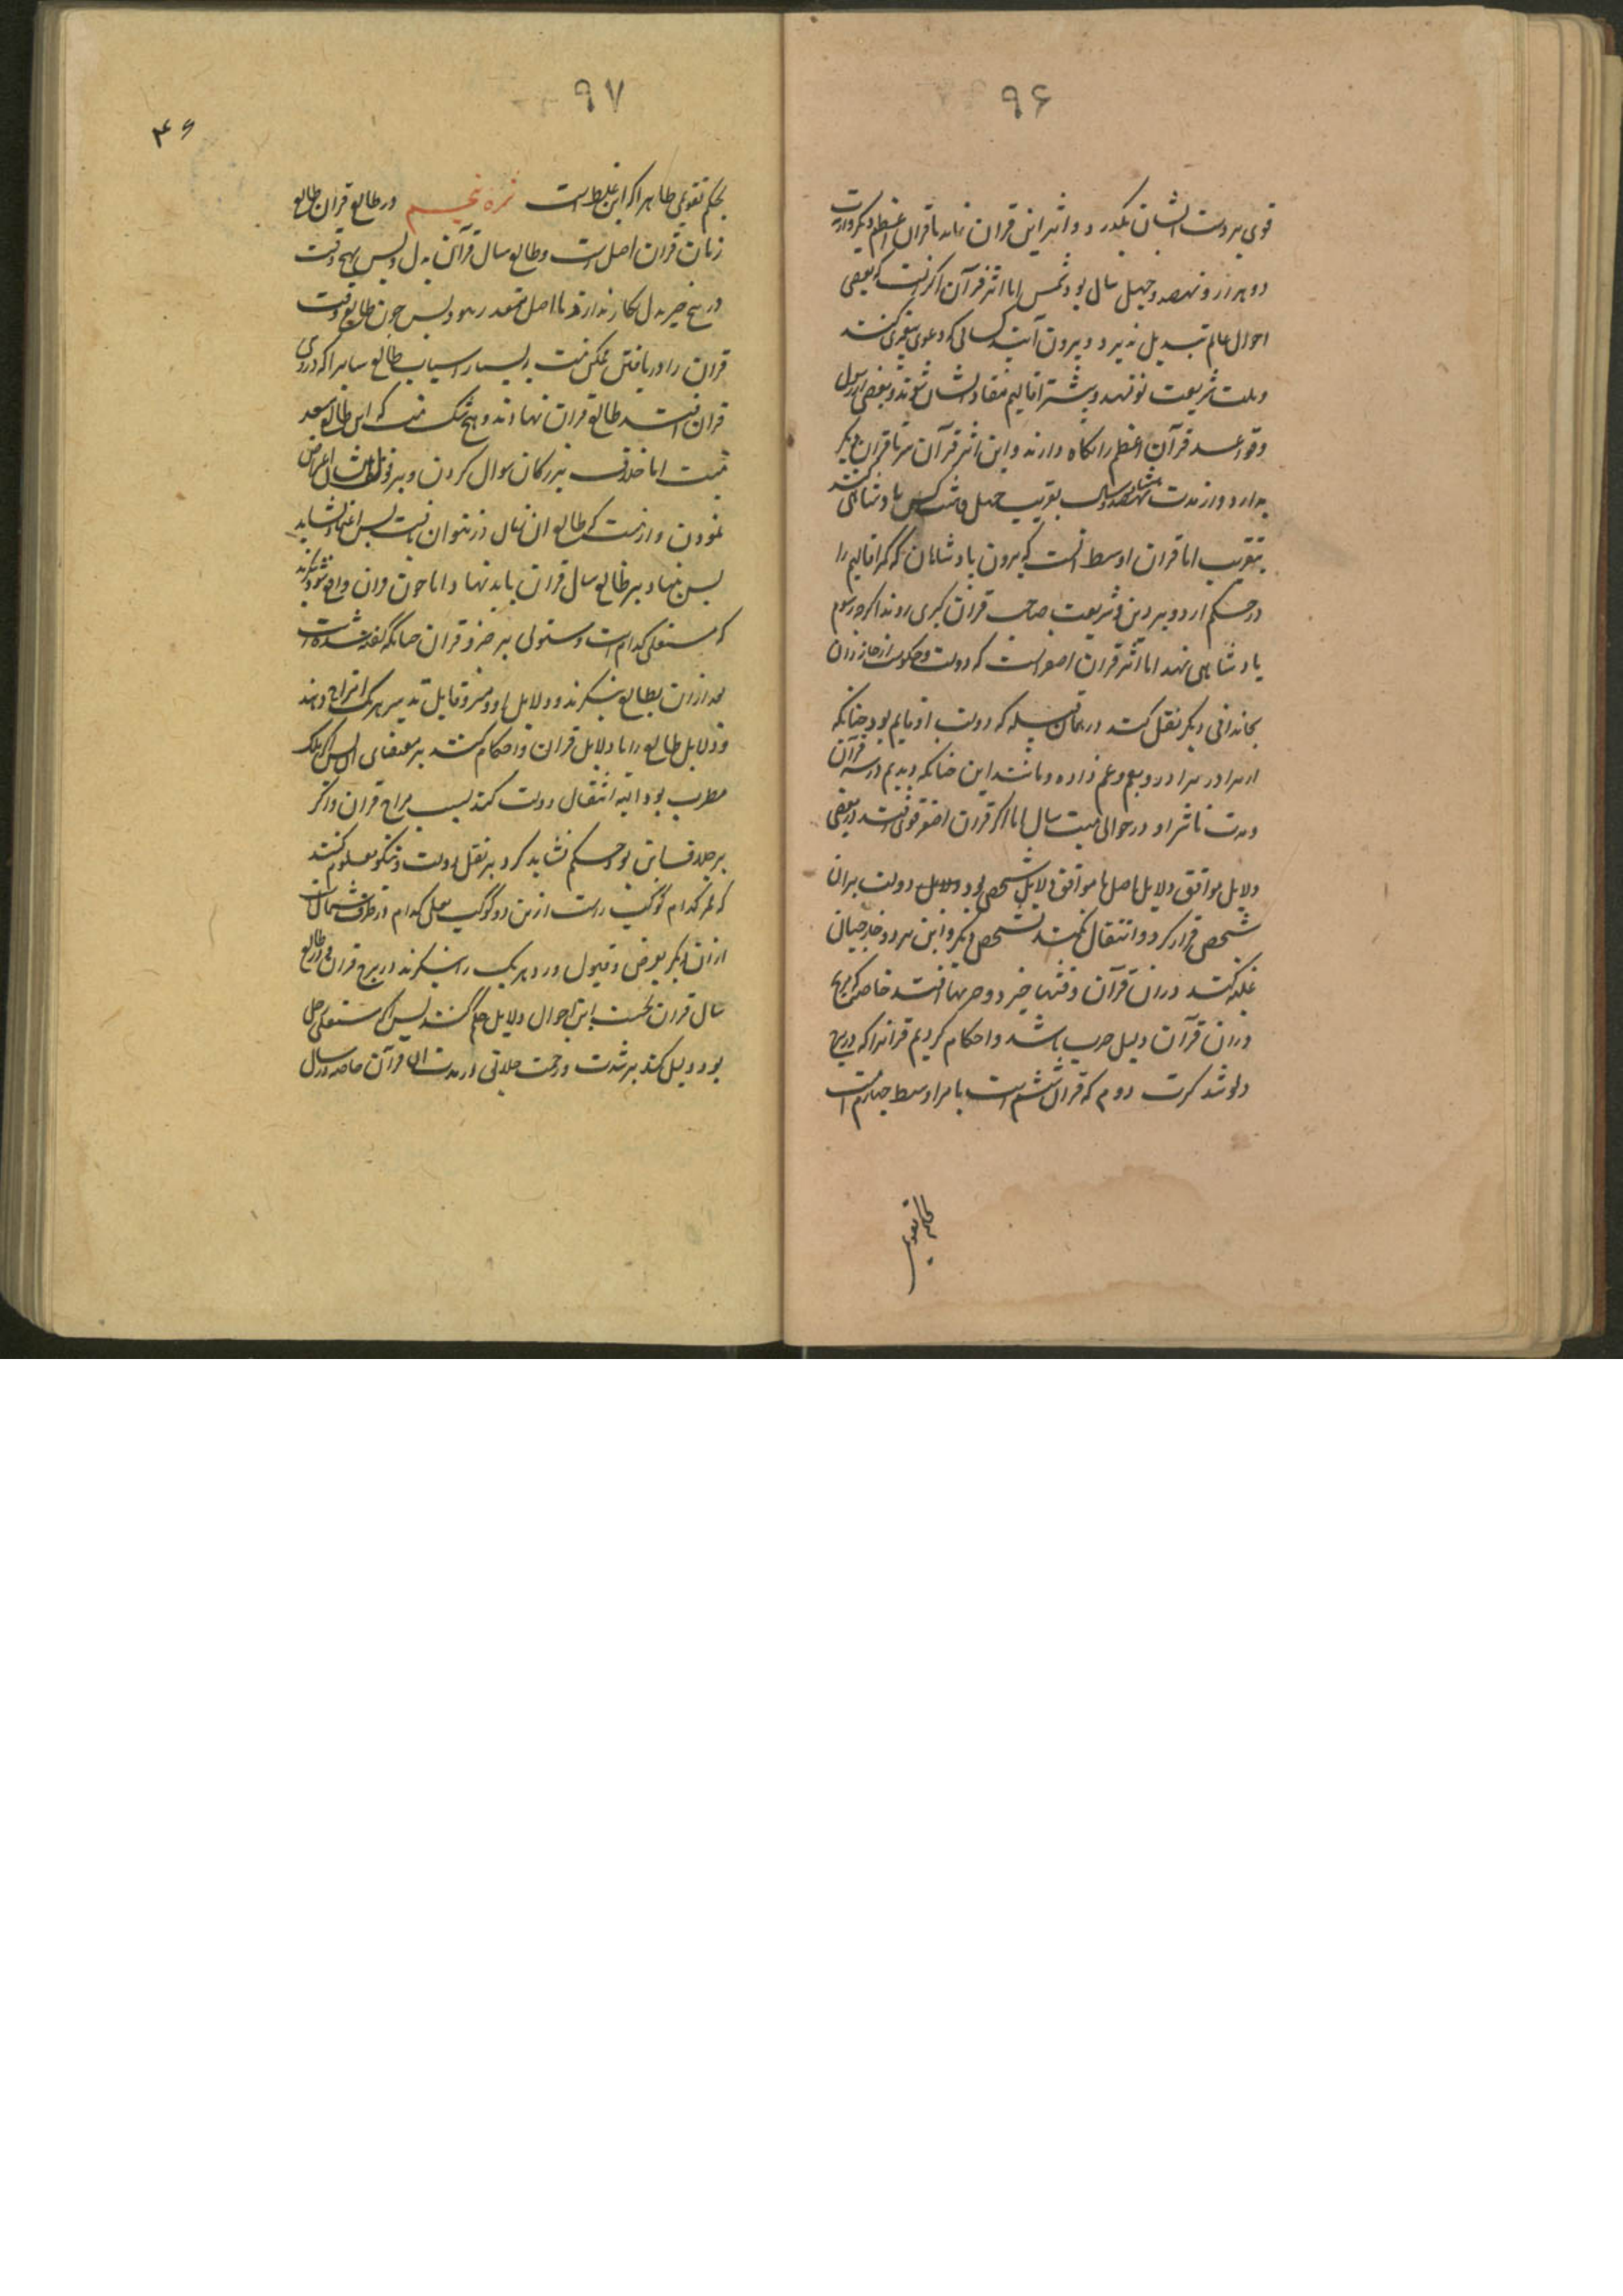 ۹۶
قوی بر دست ایشان بگذرد و اثر این قران بماند تا قران اعظم دیگر و ادوار است
دو هزار و نهصد و چهل سال بود شمس اما اثر قرآن اکبر آنست که بعضی
احوال عالم تبدیل پذیرد و بیرون آیند کسانی که دعوی پیغمبری کنند
و ملت شریعت نو نهند و بیشتر اقالیم منقاد ایشان شوند و بعضی از رسول
و قواعد قرآن اعظم را نگاه دارند و این اثر قرآن نیز تا قران دیگر
بدارد و در مدت سال بقریب چهل و شش کس پادشاهی کنند
بتقریب اما قران اوسط آنست که بیرون پادشاهان که اقالیم را
در حکم آرد و بر دین و شریعت صاحب قران کبری روند اگر چه رسوم
پادشاهی نهند اما اثر قران اصغر آنست که دولت و حکومت از خاندان
بخاندانی دیگر نقل کند در همان قبیله که دولت از قایم بود چنانکه
از برادر ببرادر و بعم و عم زاده و مانند این چنانکه دیدیم در سه قرآن
و مدت تاثیر او در حوالی بیست سال اما اگر قران اصغر قوی افتد و بعضی
دلایل موافق دلایل اصل یا موافق دلایل شخصی بود و دلایل دولت بر آن
شخص قرار کرد و انتقال نکند بشخص دیگر و این نیز و خارجیان
غلبه کنند در آن قرآن و فتنها خیزد و حربها افتد خاصه که مریخ
در آن قرآن دلیل حرب باشد و احکام کردیم قرآنرا که در برج
دلو شد کرت دوم که قران ششم است با مر اوسط چهارم است
بحکم تقویمی
۹۷
۴۶
بحکم تقویمی ظاهرا که این غلط است ثمره پنجم در طالع قران طالع
زمان قران اصل است و طالع سال قرآن بدل و پس بهیچ وقت
در هیچ چیز بدل بکار ندارند تا اصل متعذر نبود پس چون طالع وقت
قران را دریافتن ممکن نیست و بسیار اسباب طالع سایر را که در وی
قران افتد طالع قران نهادند و هیچ شک نیست که این طالع بعید
نیست اما خلاف بزرگان سوال کردن و بر قول ایشان اعتراض
نمودن و از نیست که طالع آن زمان در نتوان یافت پس اعتماد شاید
پس بنهاد بر طالع سال قران باید نهاد اما چون قران واقع شود بنگرند
که مستعلی کدام است و مستولی بر جزو قران چنانکه گفته شده است
بعد از آن بطالع بنگرند و دلایل او و جزو قابل تدبیر هر یک امتزاج دهند
و دلایل طالع را با دلایل قران و احکام کنند بر مقتضای آن پس اگر ملک
مضطرب بود البته انتقال دولت کند بسبب مزاج قران و اگر
بر خلاف این بود حکم نشاید کرد بر نقل دولت و نیکو معلوم کنند
که ممر کدام کوکب راست از این دو کوکب یعنی کدام در طرف شمال است
از آن دیگر بعرض و قبول و رد هر یک را بنگرند در برج قران و در طالع
سال قران نخست این احوال دلایل حکم کنند پس اگر مستعلی زحل
بود دلیل کند بر شدت و زحمت خلایق در مدت آن قرآن خاصه در سال